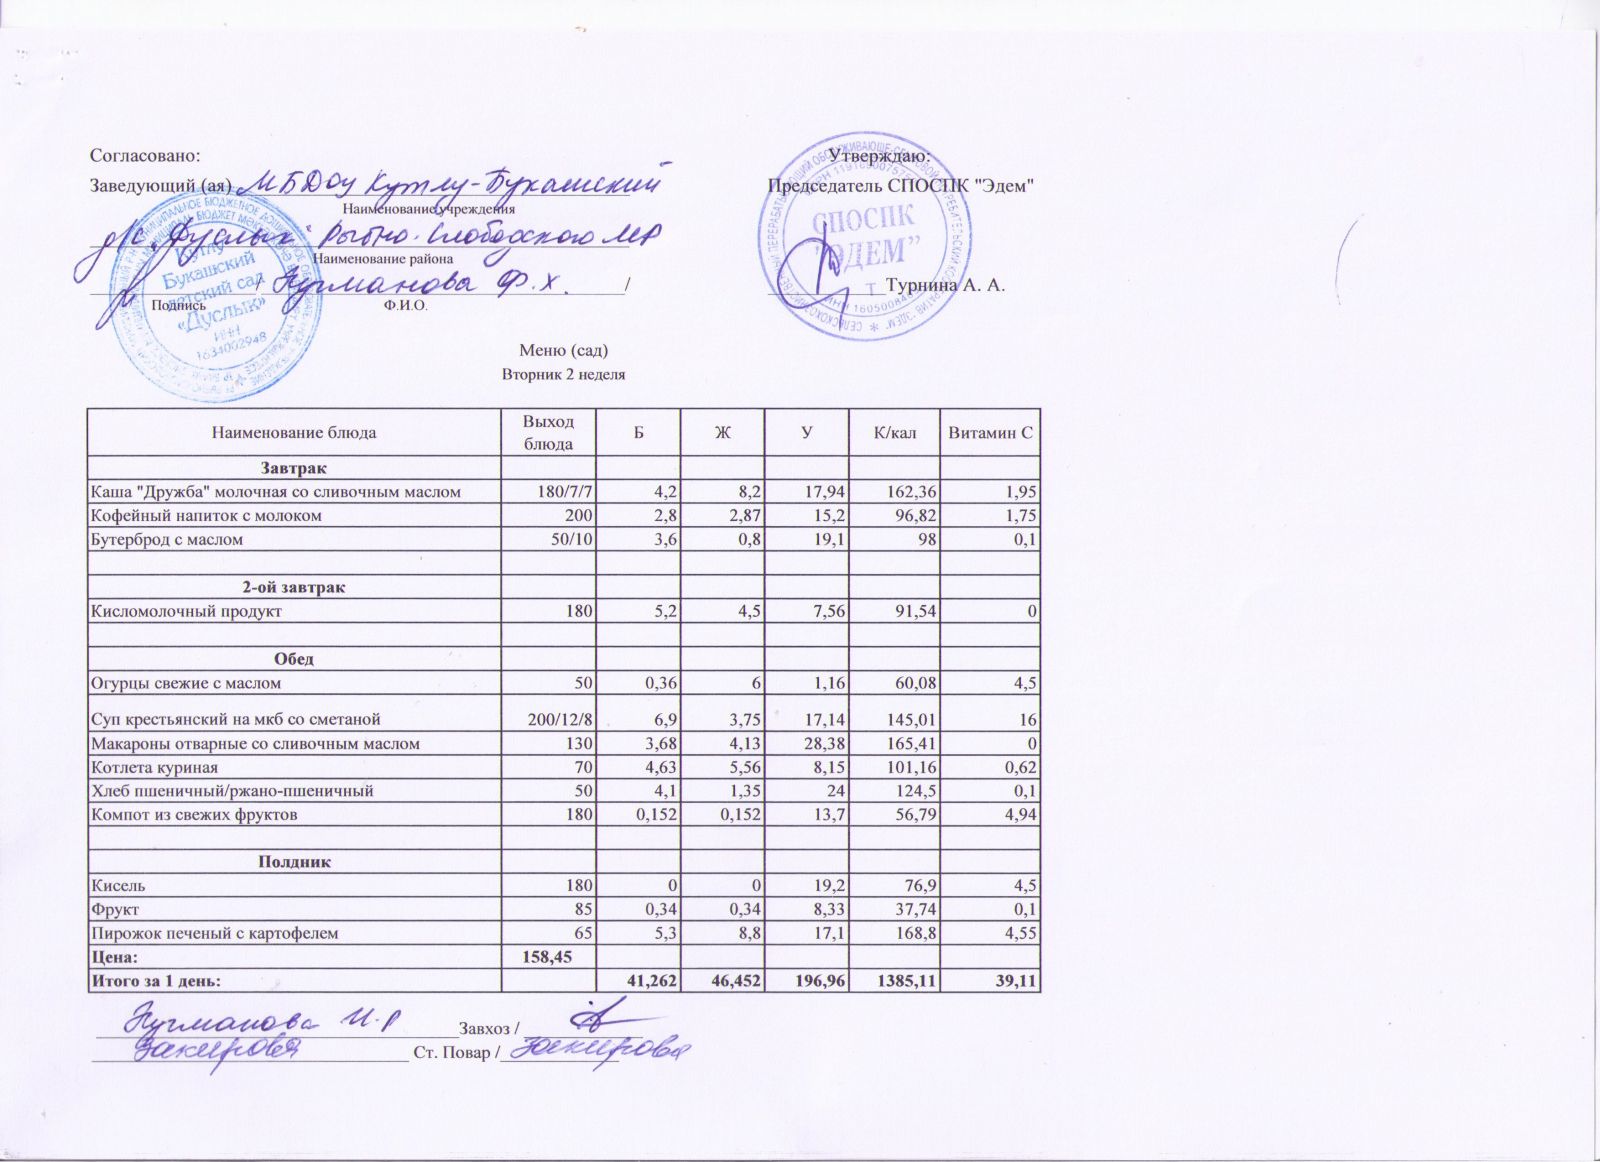 Согласовано:
Утверждаю:
Заведующий (ая) МБДОУ Кутлу-Букашский
Председатель СПОСПК "Эдем"
Наименование учреждения
д/с "Дуслык" Рыбно-Слободского МР
Наименование района
/ Нугманова Ф.Х. /
Турнина А. А.
Подпись Ф.И.О.
Кутлу
Букашский
детский сад
«Дуслык»
ИНН
1634002948
СПОСПК
"ЭДЕМ"
ИНН 16050084
Меню (сад)
Вторник 2 неделя
Наименование блюда Выход блюда Б Ж У К/кал Витамин С
Завтрак
Каша "Дружба" молочная со сливочным маслом 180/7/7 4,2 8,2 17,94 162,36 1,95
Кофейный напиток с молоком 200 2,8 2,87 15,2 96,82 1,75
Бутерброд с маслом 50/10 3,6 0,8 19,1 98 0,1
2-ой завтрак
Кисломолочный продукт 180 5,2 4,5 7,56 91,54 0
Обед
Огурцы свежие с маслом 50 0,36 6 1,16 60,08 4,5
Суп крестьянский на мкб со сметаной 200/12/8 6,9 3,75 17,14 145,01 16
Макароны отварные со сливочным маслом 130 3,68 4,13 28,38 165,41 0
Котлета куриная 70 4,63 5,56 8,15 101,16 0,62
Хлеб пшеничный/ржано-пшеничный 50 4,1 1,35 24 124,5 0,1
Компот из свежих фруктов 180 0,152 0,152 13,7 56,79 4,94
Полдник
Кисель 180 0 0 19,2 76,9 4,5
Фрукт 85 0,34 0,34 8,33 37,74 0,1
Пирожок печеный с картофелем 65 5,3 8,8 17,1 168,8 4,55
Цена: 158,45
Итого за 1 день: 41,262 46,452 196,96 1385,11 39,11
Нугманова И.Р Завхоз /
Закирова Ст. Повар / Закирова